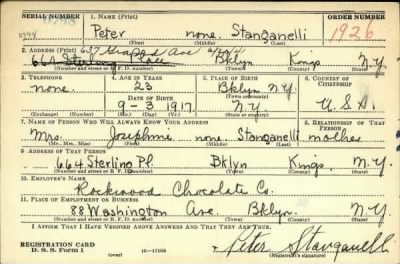 SERIAL NUMBER 1. NAME (Print) ORDER NUMBER
Peter none. Stanganelli 1926
(First) (Middle) (Last)
2. ADDRESS (Print) 637 Ave
664 Sterling Place Bklyn Kings N.Y.
(Number and street or R. F. D. number) (Town) (County) (State)
3. TELEPHONE 4. AGE IN YEARS 5. PLACE OF BIRTH 6. COUNTRY OF CITIZENSHIP
none. 23 Bklyn N.Y.
DATE OF BIRTH (Town or county)
9-3-1917. N.Y. U.S.A.
(Exchange) (Number) (Mo.) (Day) (Yr.) (State or country)
7. NAME OF PERSON WHO WILL ALWAYS KNOW YOUR ADDRESS 8. RELATIONSHIP OF THAT PERSON
Mrs. Josephine none. Stanganelli mother
(Mr., Mrs., Miss) (First) (Middle) (Last)
9. ADDRESS OF THAT PERSON
664 Sterling Pl. Bklyn Kings N.Y.
(Number and street or R. F. D. number) (Town) (County) (State)
10. EMPLOYER'S NAME
Rockwood Chocolate Co.
11. PLACE OF EMPLOYMENT OR BUSINESS
88 Washington Ave. Bklyn. N.Y.
(Number and street or R. F. D. number) (Town) (County) (State)
I AFFIRM THAT I HAVE VERIFIED ABOVE ANSWERS AND THAT THEY ARE TRUE.
REGISTRATION CARD
D. S. S. Form 1 16-17105 Peter Stanganelli
(Registrant's signature)